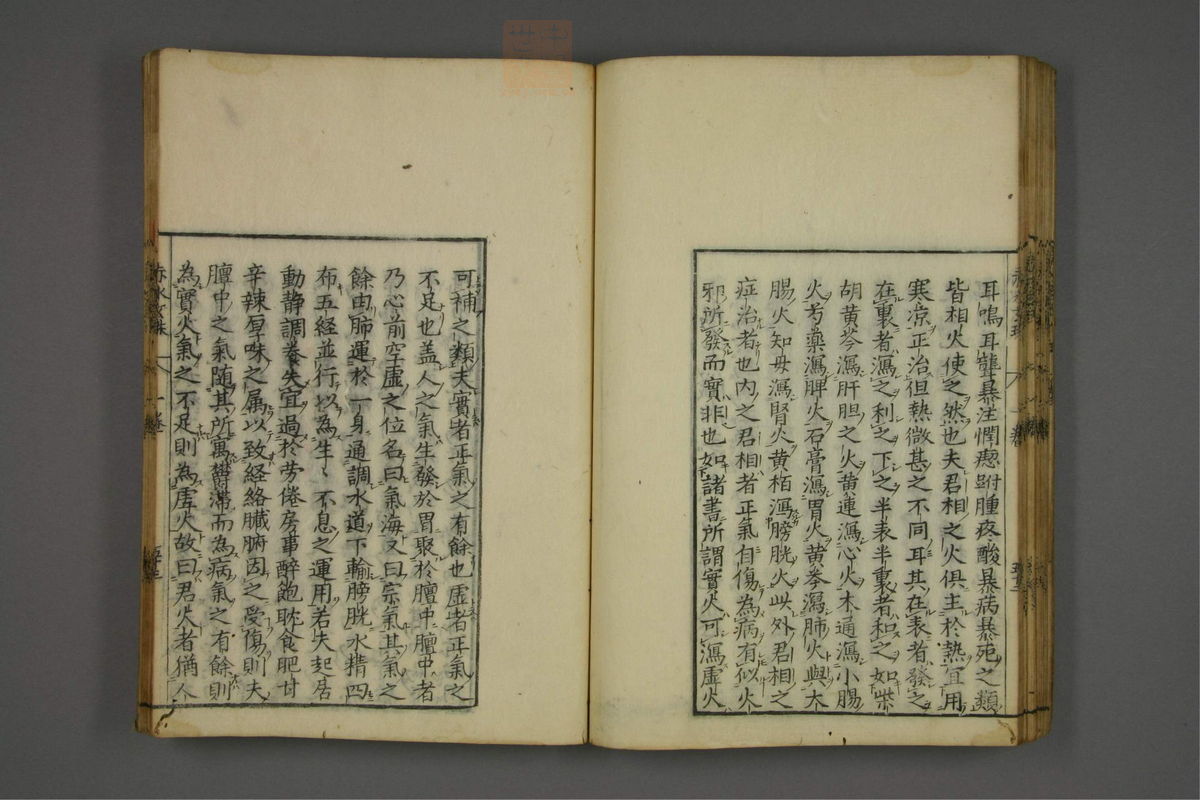 耳鳴耳聾暴注膶瘛胕腫疼酸暴病暴死之類
皆相火使之然也夫君相之火俱主於熱宜用
寒凉正治但熱微甚之不同耳其在表者發之
在裏者瀉之利之下之半表半裏者和之如柴
胡黄芩瀉肝胆之火黄連瀉心火木通瀉小腸
火芍藥瀉脾火石膏瀉胃火黄芩瀉肺火與大
腸火知母瀉腎火黄栢瀉膀胱火此外君相之
症治者也内之君相者正氣自傷為病有似火
邪所發而實非也如諸書所謂實火可瀉虚火
可補之類夫實者正氣之有餘也虚者正氣之
不足也盖人之氣生發於胃聚於膻中膻中者
乃心前空虚之位名曰氣海又曰宗氣其氣之
餘由肺運於一身通調水道下輸膀胱水精四
布五経並行以為生〻不息之運用若失起居
動静調養失宜過於労倦房事醉飽耽食肥甘
辛辣厚味之属以致経絡臓腑因之受傷則夫
膻中之氣随其所寓欝滞而為病氣之有餘則
為實火氣之不足則為虚火故曰君火者猶人
赤水玄珠 一巻